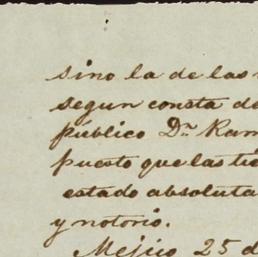 sino la de las
segun consta de
público Dn Ram
puesto que las tie
estado absoluta
y notorio.
Mejico 25 d